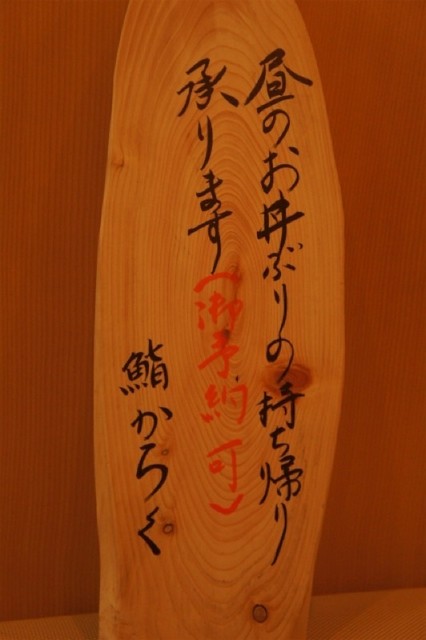 昼のお丼ぶりの持ち帰り
承ります(御予約可)
鮨からく